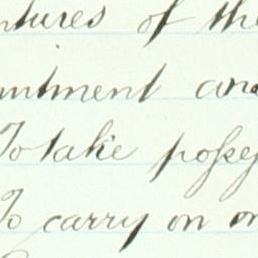 ntures of the
intment and
To take posses
To carry on or